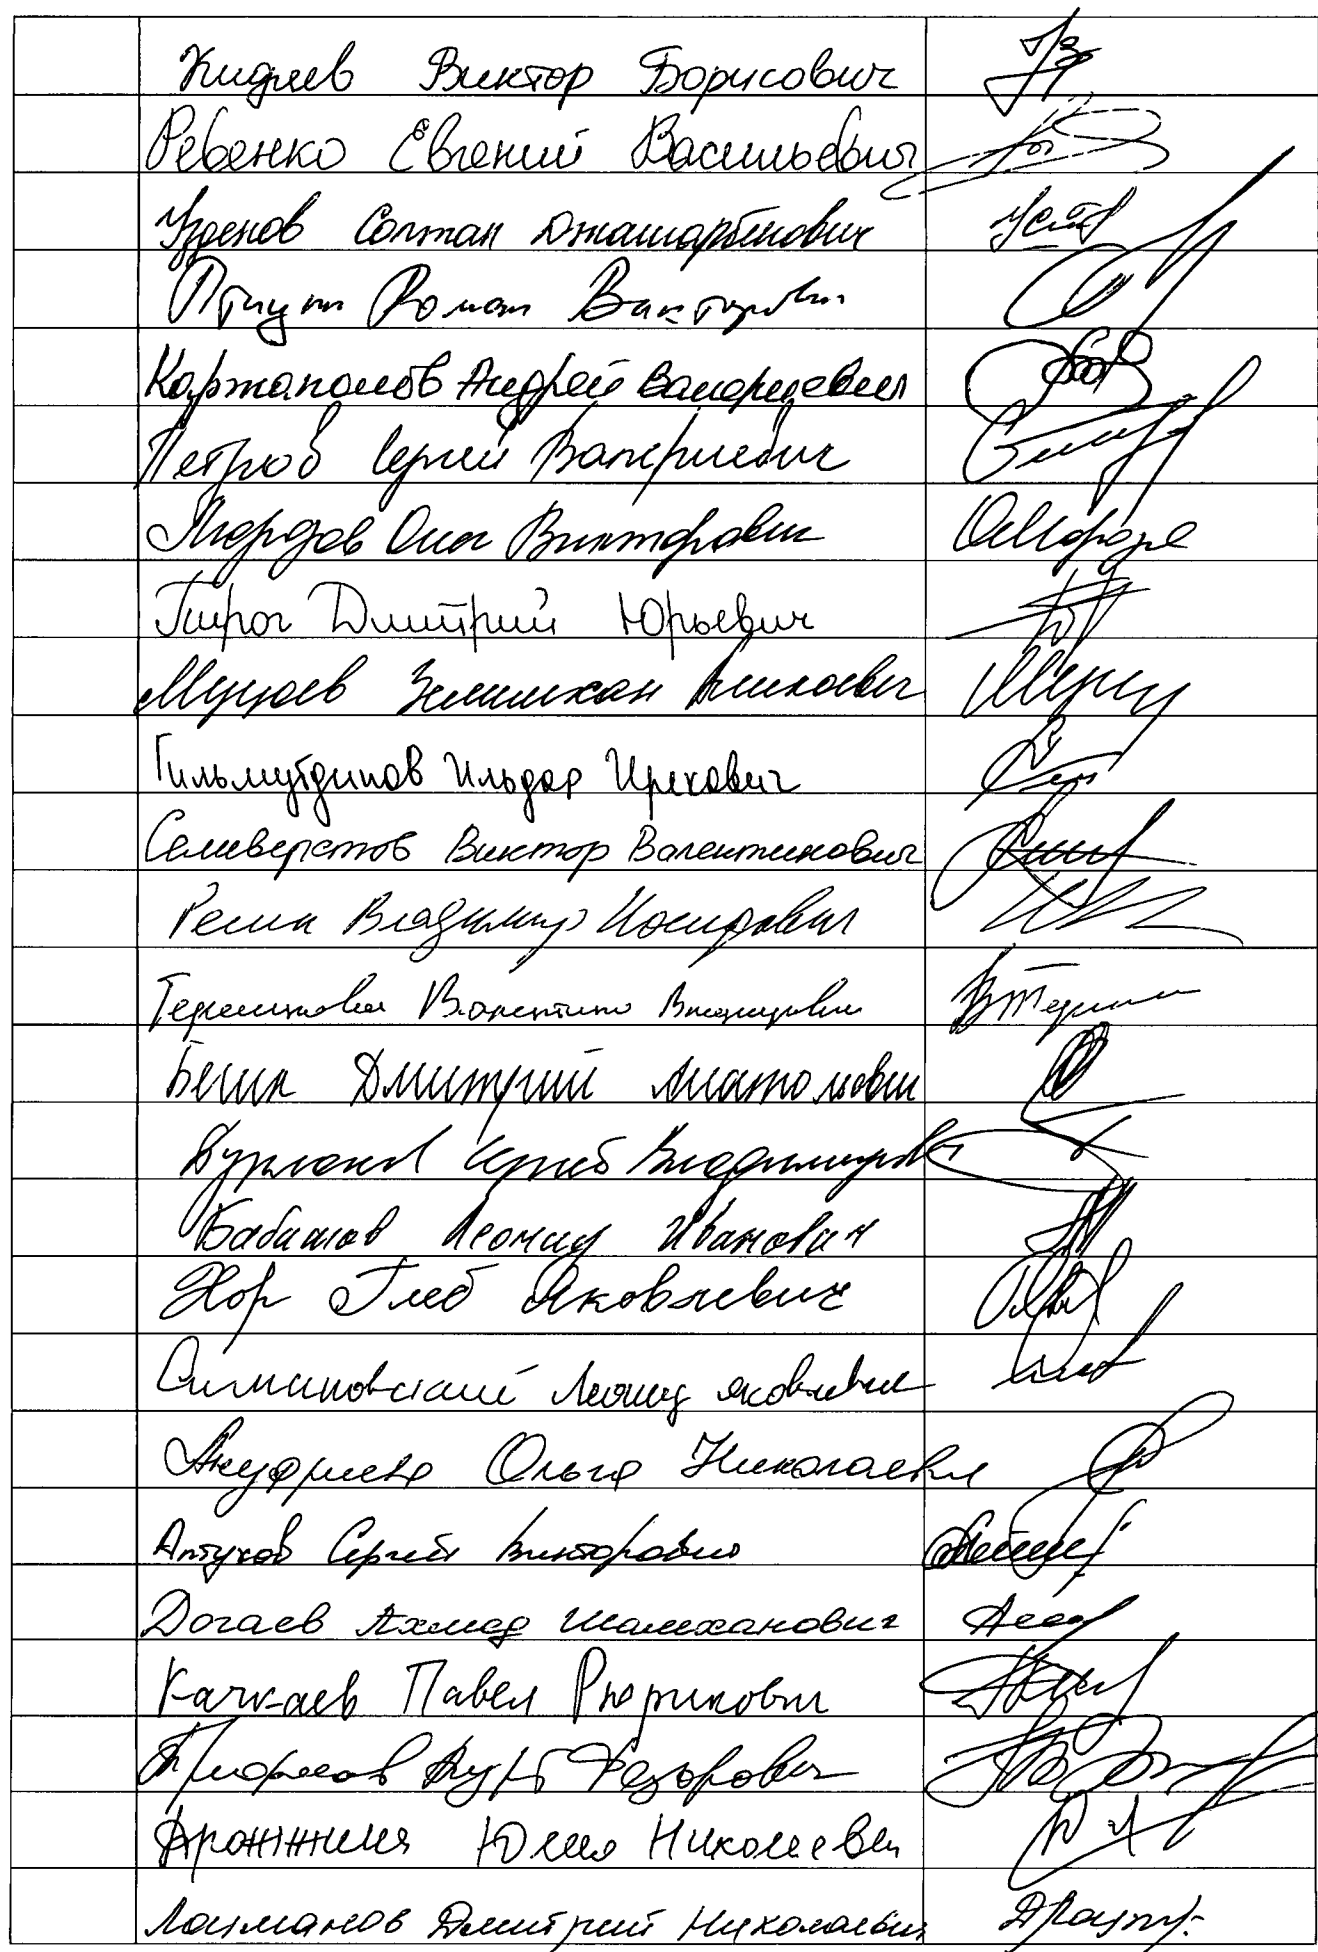 Кидяев Виктор Борисович
Ревенко Евгений Васильевич
Узденов Солтан Джашарбекович
Птицын Роман Викторович
Коржаполов Андрей Валерьевич
Петров Сергей Валериевич
Морозов Олег Викторович
Пирог Дмитрий Юрьевич
Муцоев Зелимхан Аликоевич
Гильмутдинов Ильдар Ирекович
Селиверстов Виктор Валентинович
Ресин Владимир Иосифович
Терешкова Валентина Владимировна
Белик Дмитрий Анатольевич
Бурлаков Сергей Владимирович
Бабашов Леонид Иванович
Хор Глеб Яковлевич
Симановский Леонид Яковлевич
Ануфриева Ольга Николаевна
Алтухов Сергей Викторович
Догаев Ахмед Шамханович
Качкаев Павел Рюрикович
Федорович
Дрожжина Юлия Николаевна
Лоцманов Дмитрий Николаевич